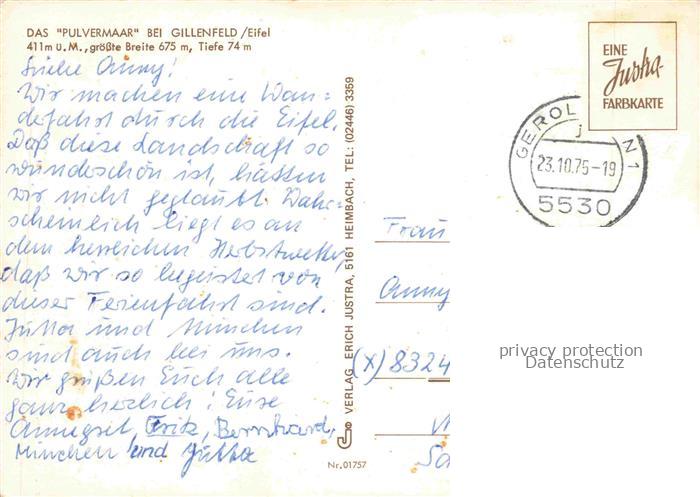 DAS "PULVERMAAR" BEI GILLENFELD/Eifel
411m ü.M., größte Breite 675 m, Tiefe 74 m
Liebe Anny!
Wir machen eine Wan=
defahrt durch die Eifel.
Daß diese Landschaft so
wundeschön ist, hätten
wir nicht geglaubt. Wahr-
scheinlich liegt es an
dem herrlichen Herbstwetter,
daß wir so begeistert von
dieser Ferienfahrt sind.
Jutta und München
sind auch bei uns.
Wir grüßen Euch alle
ganz herzlich! Eure
Annegret, Fritz, Bernhard,
München und Jutta
VERLAG ERICH JUSTRA, 5161 HEIMBACH, TEL: (02446) 3359
Nr. 01757
EINE
Justra-
FARBKARTE
GEROL N 1
j
23.10.75-19
5530
Frau
Anny
(X) 8324
privacy protection
Datenschutz